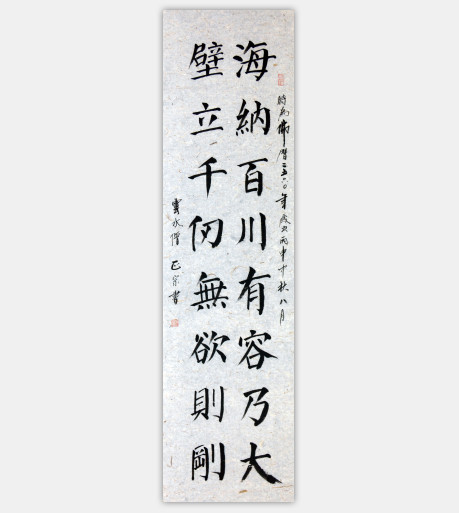 時為佛曆二五六〇年歲次丙申中秋八月
海納百川有容乃大
壁立千仞無欲則剛
雲水僧 正宗書